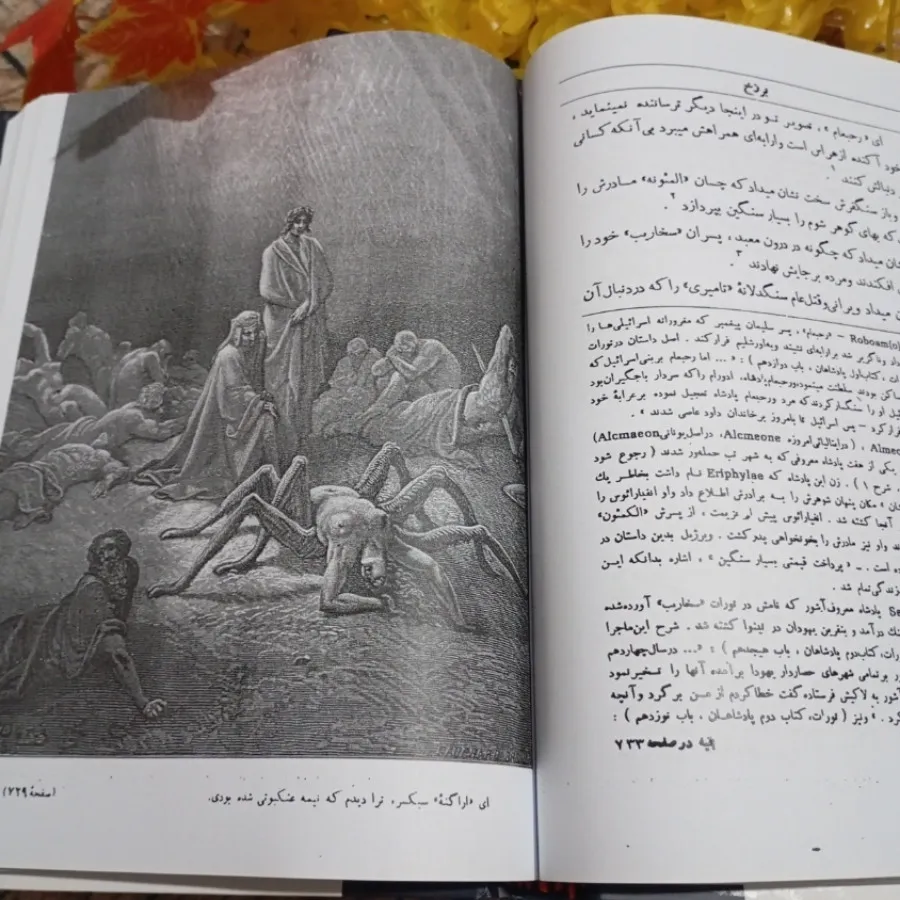 ای «اراگنهٔ» سبکسر، ترا دیدم که نیمه عنکبوتی شده بودی.
(صفحهٔ ۷۲۹)
برزخ
ای «رحبعام» ، تصویر تو در اینجا دیگر ترساننده نمینماید ،
خود آکنده از هراس است وارابه‌ای همراهش میبرد بی آنکه کسانی
دنبالش کنند ۱
و باز سنگفرش سخت نشان میداد که چسان «المئونه» مادرش را
که بهای گوهر شوم را بسیار سنگین بپردازد ۲ .
میداد که چگونه در درون معبد ، پسران «سخاریب» خود را
افکندند ومرده برجایش نهادند ۳ .
میداد ویرانی وقتل‌عام سنگدلانهٔ «تامیری» را که دردنبال آن
Roboamo – «رحبعام» ، پسر سلیمان پیغمبر که مغرورانه اسرائیلی‌ها را
وناگزیر شد برارابه‌ای نشیند وبه‌اورشلیم فرار کند . اصل داستان در تورات
، کتاب‌اول پادشاهان ، باب دوازدهم ) : « ... اما رحبعام بربنی‌اسرائیل که
ساکن بودند سلطنت مینمود،ورحبعام‌پادشاه، ادورام را که سردار باجگیران‌بود
او را سنگسار کردند که مرد ورحبعام پادشاه تعجیل نموده برعرابهٔ خود
فرار کرد – پس اسرائیل تا بامروز برخاندان داود عاصی شدند » .
، ( درایتالیائی‌امروزه Alcmeone، دراصل‌یونانی Alcmaeon)
یکی از هفت پادشاه معروفی که به شهر تب حمله‌ور شدند ( رجوع شود
، شرح ۱ ) . زن این پادشاه که Eriphylae نام داشت بخاطر یك
مکان پنهان شوهرش را به برادرش اطلاع داد واو آنفیارائوس را
آنجا کشته شد . آنفیارائوس پیش از عزیمت ، از پسرش «الکمئون»
واو نیز مادرش را بخونخواهی پدر کشت . ویرژیل بدین داستان در
است . – «پرداخت قیمتی بسیار سنگین » ، اشاره بدانکه این
زندگی تمام شد .
پادشاه معروف‌آشور که نامش در تورات «سخاریب» آورده‌شده
درآمد و بنفرین یهودان در نینوا کشته شد . شرح این‌ماجرا
، کتاب‌دوم پادشاهان ، باب هیجدهم ) : «... درسال‌چهاردهم
برتمامی شهرهای حصاردار یهودا برآمده آنها را تسخیرنمود
آشور به لاکیش فرستاده گفت خطاکردم از من برگرد وآنچه
. » ونیز ( تورات، کتاب دوم پادشاهان ، باب نوزدهم ) :
بقیه در صفحه ۷۳۳